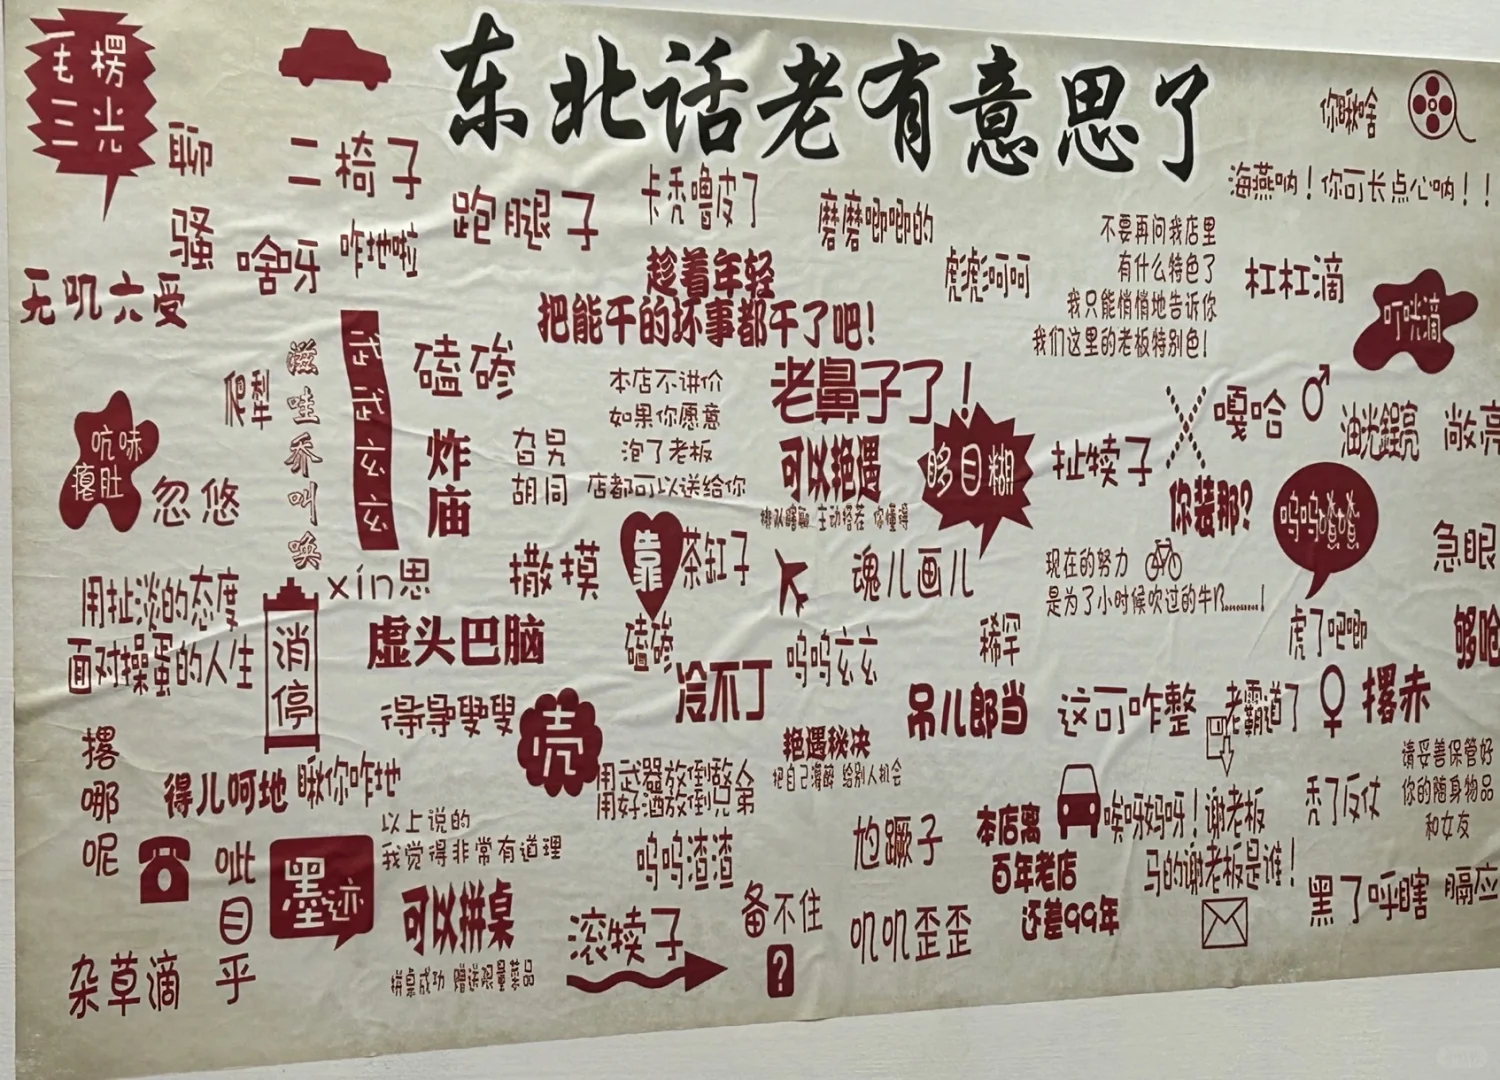 东北话老有意思了
毛楞
三光
聊
骚
二椅子
跑腿子
卡秃噜皮了
磨磨唧唧的
你瞅啥
海燕呐！你可长点心呐！！
啥呀
咋地啦
无叽六受
趁着年轻
把能干的坏事都干了吧！
虎虎诃诃
不要再问我店里
有什么特色了
我只能悄悄地告诉你
我们这里的老板特别色！
杠杠滴
叮咣滴
爬犁
滋
哇
乔
叫
唤
武
武
玄
玄
磕碜
本店不讲价
如果你愿意
泡了老板
店都可以送给你
老鼻子了！
可以艳遇
主动搭茬 你懂得
眵目糊
扯犊子
嘎哈
油光锃亮
敞亮
吭哧
瘪肚
忽悠
炸
庙
旮旯
胡同
你装那?
呜呜喳喳
急眼
撒摸
靠
茶缸子
魂儿画儿
现在的努力
是为了小时候吹过的牛B.........!
xín思
用扯淡的态度
面对操蛋的人生
消
停
虚头巴脑
磕碜
冷不丁
呜呜玄玄
稀罕
虎了吧唧
够呛
得得叟叟
壳
吊儿郎当
这可咋整
老霸道了
撂赤
撂
哪
呢
得儿呵地
瞅你咋地
用武器放倒敌人
用好酒放倒兄弟
艳遇秘决
把自己灌醉 给别人机会
请妥善保管好
你的随身物品
和女友
以上说的
我觉得非常有道理
呜呜渣渣
尥蹶子
本店离
百年老店
还差99年
唉呀妈呀！谢老板
马的谢老板是谁！
秃了反仗
呲
目
乎
墨迹
可以拼桌
拼桌成功 赠送限量菜品
滚犊子
备不住
?
叽叽歪歪
黑了呼瞎
膈应
杂草滴